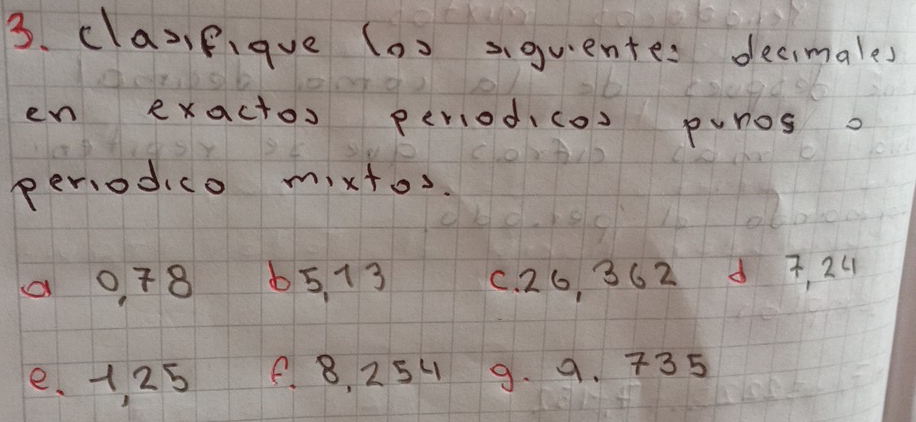 3. clasifique los siguientes decimales
en exactos periodicos puros o
periodico mixtos.
a 0,78 b 5,13 c. 26,362 d 7,24
e. 1,25 f. 8,254 g. 9.735